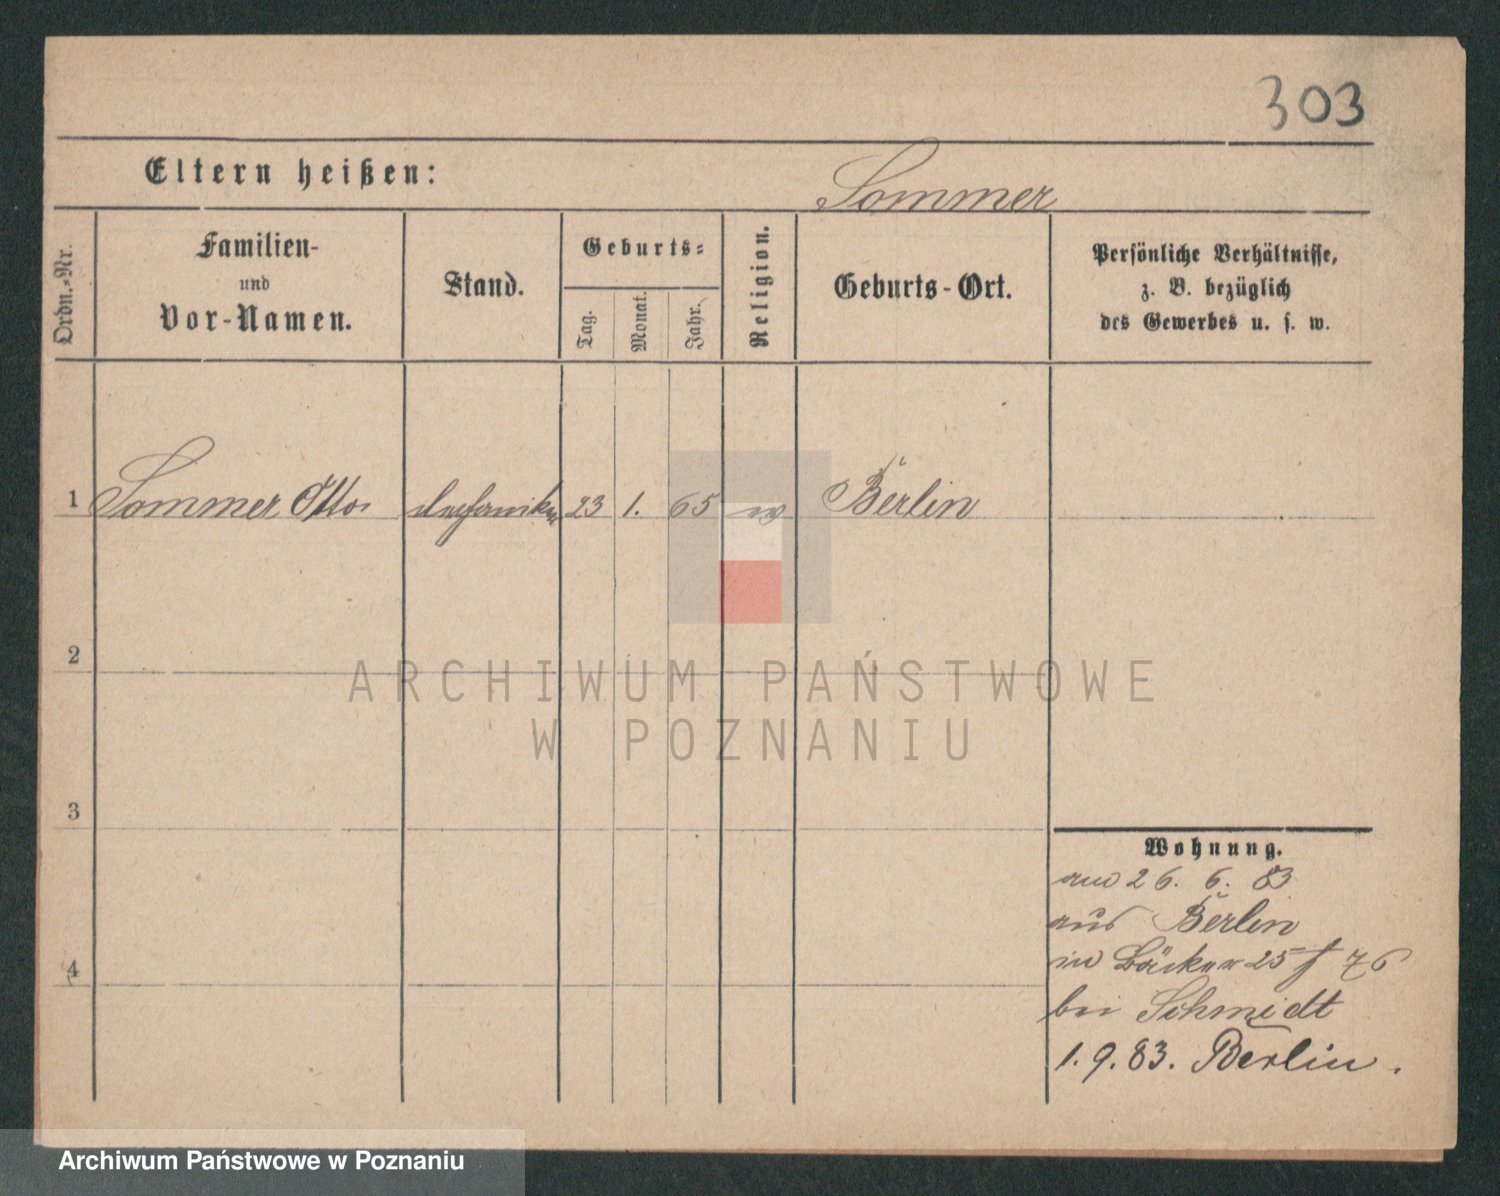 303
Eltern heißen:
Sommer
Ordn.-Nr.
Familien-
und
Vor-Namen.
Stand.
Geburts-
Tag.
Monat.
Jahr.
Religion.
Geburts-Ort.
Persönliche Verhältnisse,
z. B. bezüglich
des Gewerbes u. s. w.
1 Sommer Otto Mechaniker 23 1. 65 Berlin
2
3
4
Wohnung.
am 26. 6. 83
aus Berlin
in 25 76
bei Schmidt
1. 9. 83. Berlin.
ARCHIWUM PAŃSTWOWE
W POZNANIU
Archiwum Państwowe w Poznaniu